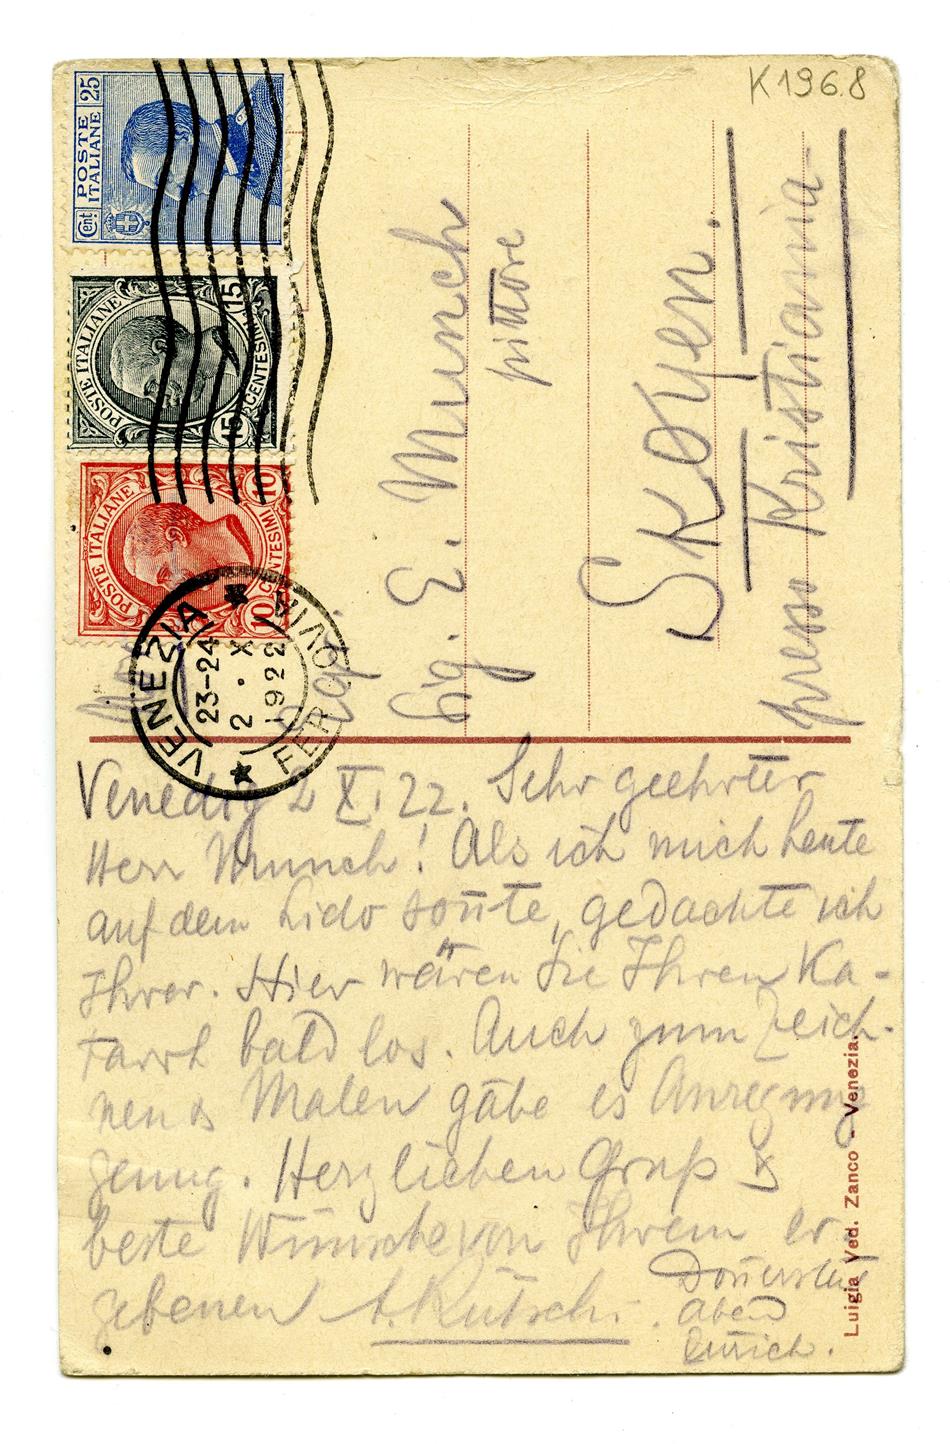 K1968
Cent. 25
POSTE
ITALIANE
POSTE ITALIANE
15 CENTESIMI 15
POSTE ITALIANE
10 CENTESIMI 10
VENEZIA
23-24
2 · X
1922
FERROVIA
Sig. E. Munch
pittore
Skoyen.
presso Kristiania
Venedig 2 X. 22. Sehr geehrter
Herr Munch! Als ich mich heute
auf dem Lido soñte, gedachte ich
Ihrer. Hier wären Sie Ihren Ka-
tarrh bald los. Auch zum Zeich-
nen & Malen gäbe es Anregung
genug. Herzlichen Gruß &
beste Wünsche von Ihrem er-
gebenen A. Rütschi.
Abend
Zürich.
Luigia Ved. Zanco - Venezia.